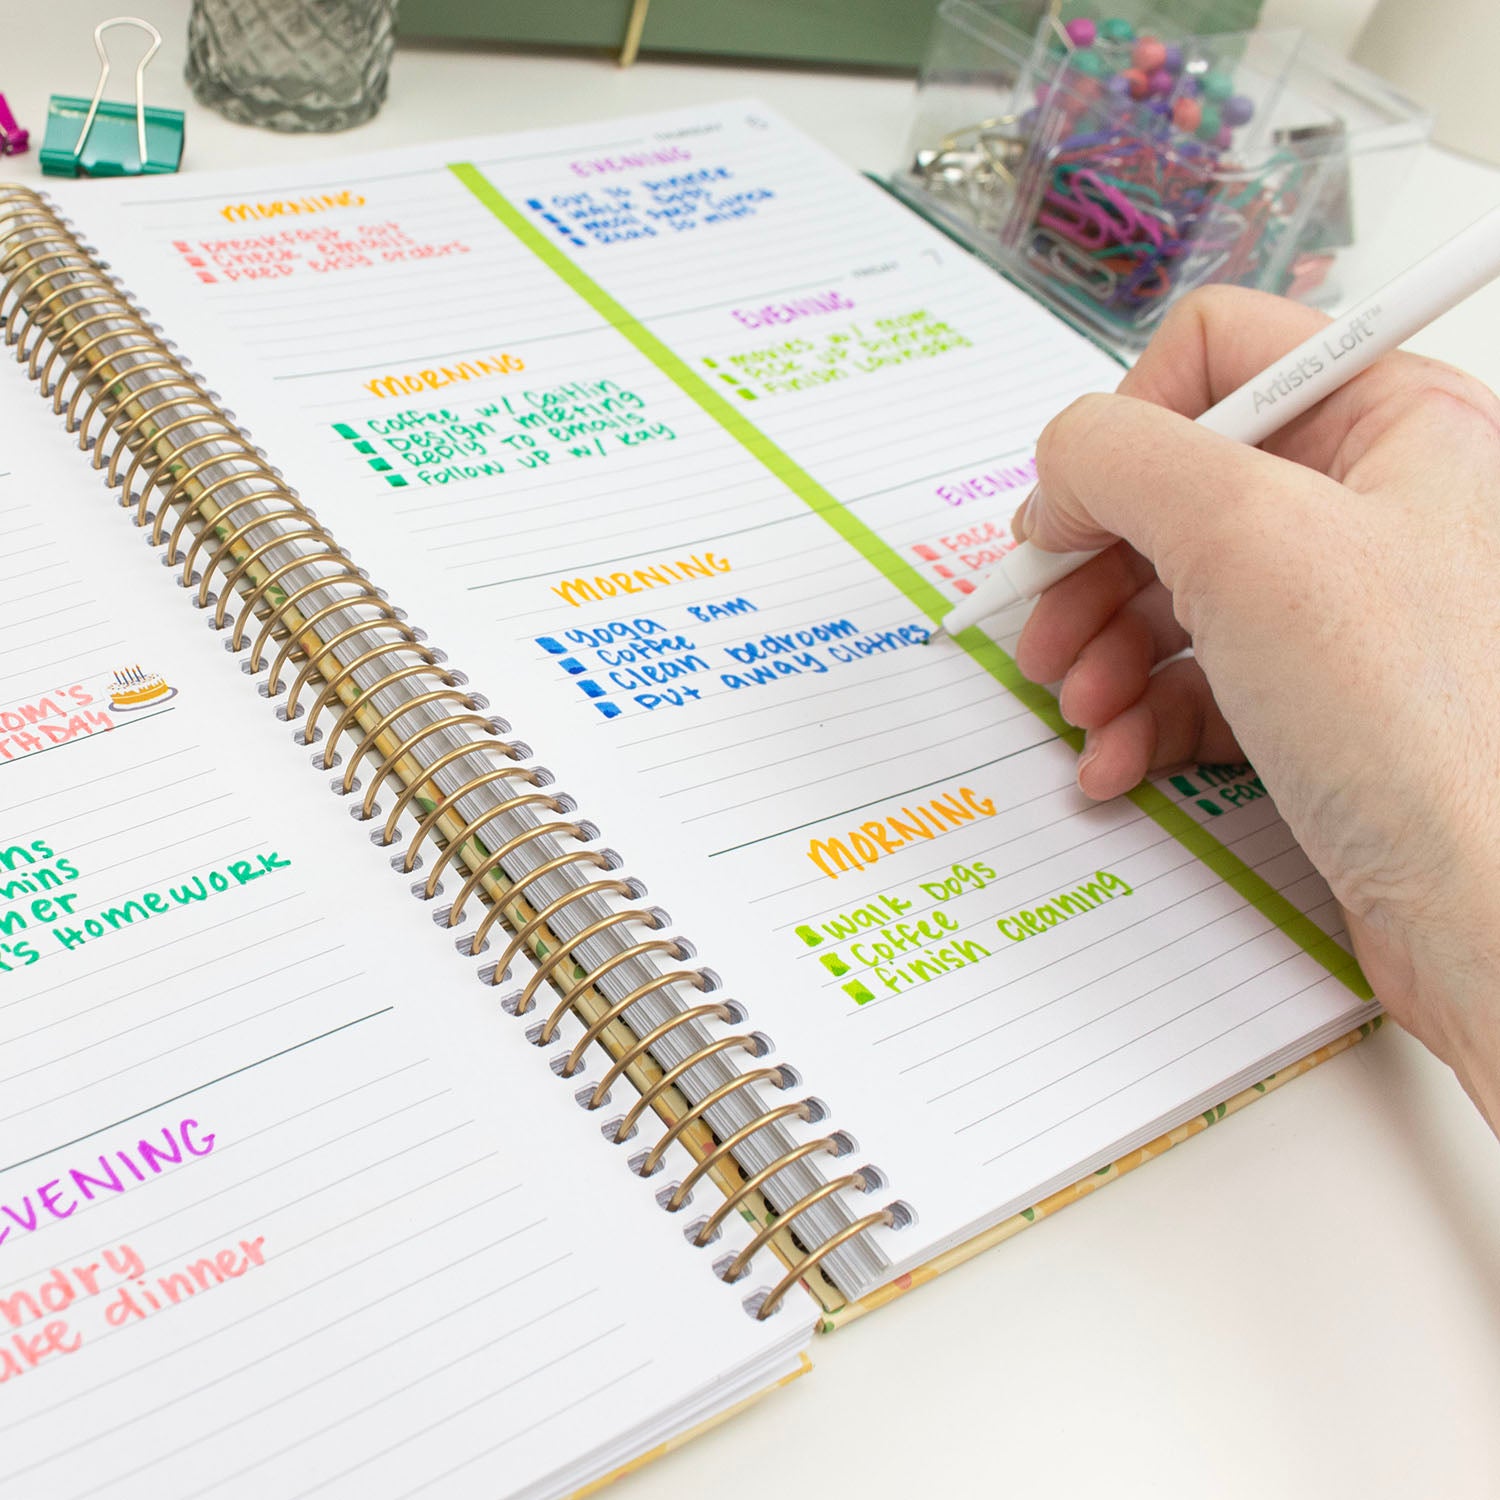 OM'S
THDAY
ns
mins
ner
's HOMEWORK
EVENING
ndry
ake dinner
THURSDAY 6
MORNING
breakfast out
Check emails
PREP etsy orders
EVENING
out to dinner
walk dogs
meal prep lunch
Read 30 mins
FRIDAY 7
MORNING
Coffee w/ Caitlin
Design meeting
Reply to emails
Follow up w/ Kay
EVENING
movies w/ mom
Pick up dinner
Finish laundry
MORNING
yoga 8AM
Coffee
Clean bedroom
Put away clothes
EVENING
Face
MORNING
Walk Dogs
Coffee
Finish cleaning
Artist's Loft™